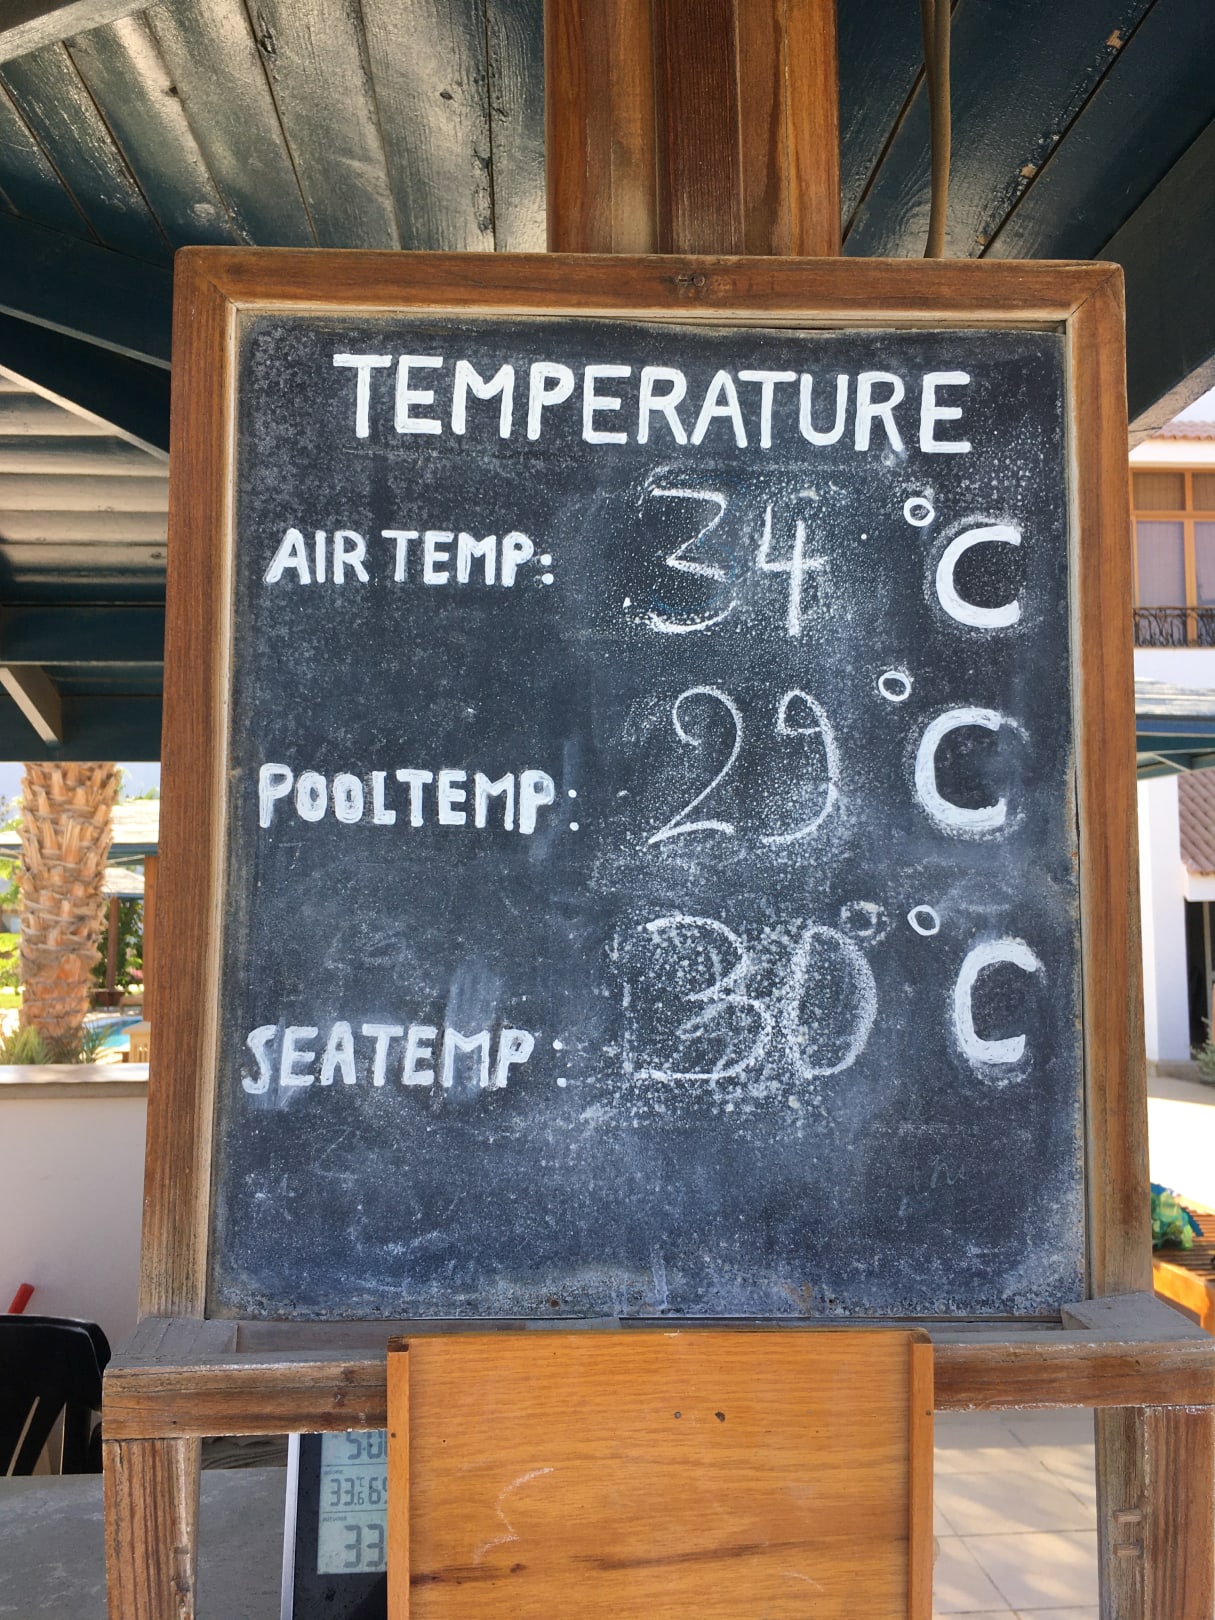 TEMPERATURE
AIR TEMP: 34 °C
POOL TEMP: 29 °C
SEA TEMP: 30 °C
33.6
33.